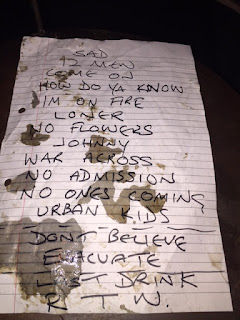 SAD
12 MEN
COME ON
HOW DO YA KNOW
I'M ON FIRE
LONER
NO FLOWERS
JOHNNY
WAR ACROSS
NO ADMISSION
NO ONES COMING
URBAN KIDS
DON'T BELIEVE
EVACUATE
1ST DRINK
R T W.